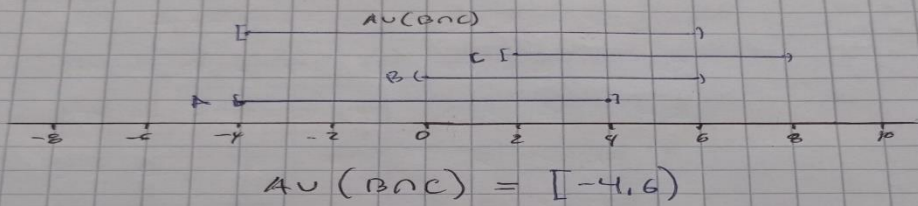 A∪(B∩C)
[ )
C [ )
B ( )
A [ ]
-8 -6 -4 -2 0 2 4 6 8 10
A∪(B∩C) = [-4,6)